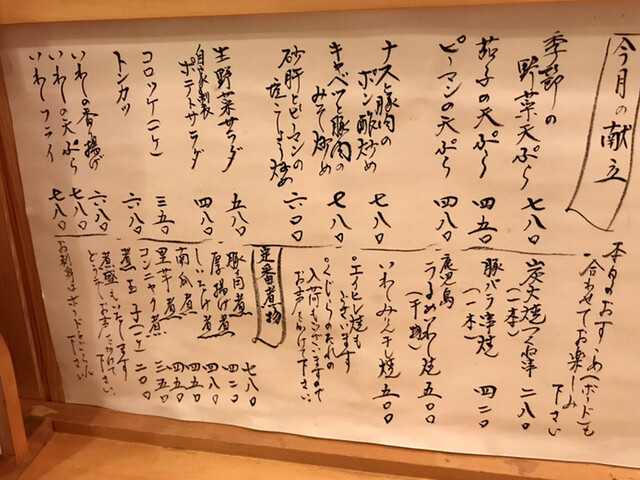 今月の献立
季節の
野菜天ぷら 七八〇
茄子の天ぷら 四五〇
ピーマンの天ぷら 四八〇
ナスと豚肉の
ポン酢炒め 七八〇
キャベツと豚肉の
みそ炒め 七八〇
砂肝とピーマンの
塩こしょう炒め 六〇〇
生野菜サラダ 五八〇
自家製
ポテトサラダ 四八〇
コロッケ(一ケ) 三五〇
トンカツ 六八〇
いわしの香り揚げ 六八〇
いわしの天ぷら 七八〇
いわしフライ 七八〇
本日のおすすめ(ボード)も
合わせてお楽しみ
下さい
炭火焼つくね串
(一本) 二八〇
豚バラ串焼
(一本) 四二〇
鹿児島
うるめいわし焼 五〇〇
(干物)
いわしみりん干し焼 五〇〇
•エイヒレ焼も
ございます
•くじらのたれの
入荷もございますので
お声をかけて下さい
定番煮物
豚角煮 七八〇
厚揚げ煮 四二〇
しいたけ煮 四八〇
南瓜煮 四五〇
里芋煮 四五〇
コンニャク煮 三五〇
煮玉子(一ケ) 二〇〇
煮盛もいたします
どうぞお声をかけて
下さい
お刺身はボードをごらん
下さい